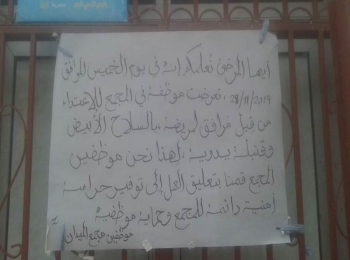 أيها المرضى نعلمكم انه في يوم الخميس الموافق
28/11/2019، تعرضت موظفة في المجمع للإعتداء
من قبل مرافق لمريضة، بالسلاح الأبيض
وقنبلة يدوية، لهذا نحن موظفين
المجمع قمنا بتعليق العمل إلى توفير حراسة
أمنية دائمة للمجمع وحماية موظفيه
موظفين مجمع